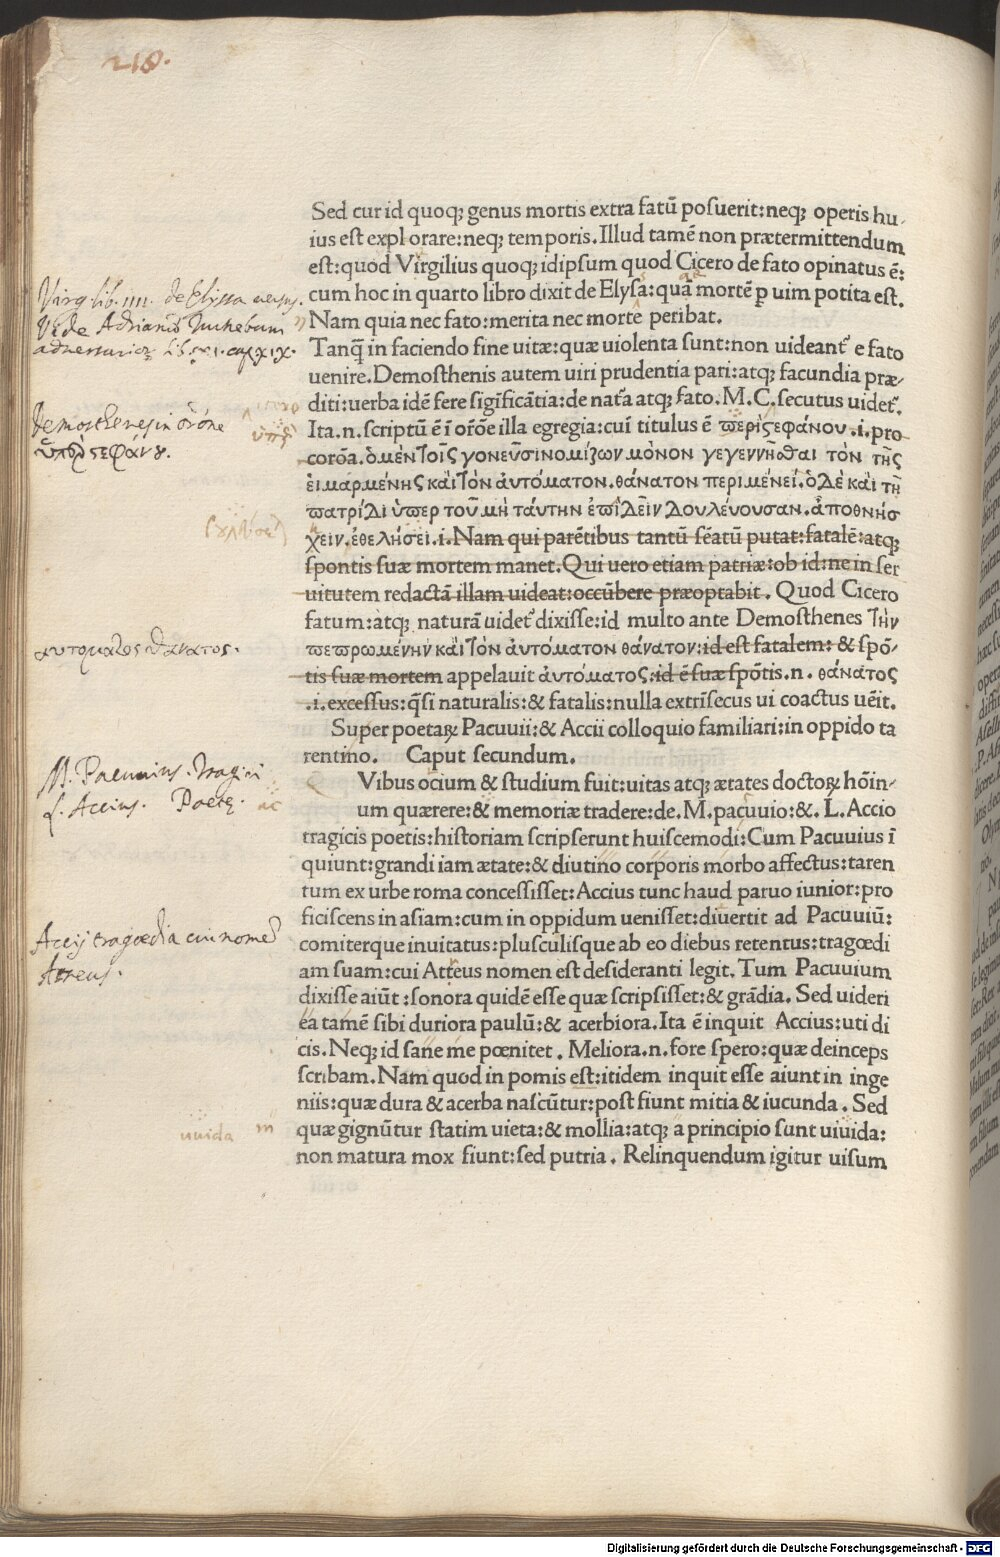 218.
Sed cur id quoq; genus mortis extra fatū posuerit:neq; operis hu,
ius est explorare:neq; temporis. Illud tamē non prætermittendum
est:quod Virgilius quoq; idipsum quod Cicero de fato opinatus ē:
cum hoc in quarto libro dixit de Elysa:quā mortē ꝑ uim potita est.
Nam quia nec fato:merita nec morte peribat.
Tanq̄ in faciendo fine uitæ:quæ uiolenta sunt:non uideant᷑ e fato
uenire. Demosthenis autem uiri prudentia pari:atq; facundia præ-
diti:uerba idē fere sigīficātia:de nat᷑a atq; fato. M. C. secutus uidet᷑.
Ita.n. scriptū ē ī or̄oē illa egregia:cuī titulus ē ϖερὶϛεφάνου .i. pro
corōa. ὁμὲν Τοῖς γονεῦσινομίζων μὸνον γεγεννῆσθαι τὸν τῆς
ἐιμαρμένης κὰι Τὸν ἀυτόματον. θάνατον περιμένεί. ὁ Δὲ κὰι τῆ
ϖατρίΔι ὑϖερ τοῦ μὴ τάυτην ἐϖῖΔεῖν Δουλέυουσαν. ἀποθνήσ
χειν. ἐθελήσει .i. Nam qui parētibus tantū sēatū putat:fatalē:atq;
spontis suæ mortem manet. Qui uero etiam patriæ:ob id:ne in ser
uitutem redactā illam uideat:occūbere præoptabit. Quod Cicero
fatum:atq; naturā uidet᷑ dixisse:id multo ante Demosthenes Τὴν
ϖεϖρωμένην κὰι Τὸν ἀυτόματον θάνατον:id est fatalem: & spō-
tis suæ mortem appelauit ἀυτόματος:id ē suæ spōtis.n. θάνατος
.i. excessus:q̄si naturalis:& fatalis:nulla extrīsecus ui coactus uēit.
Super poetaꝝ Pacuuii:& Accii colloquio familiari:in oppido ta
rentino. Caput secundum.
Vibus ocium & studium fuit:uitas atq; ætates doctoꝝ hōin-
um quærere:& memoriæ tradere:de. M. pacuuio:&. L. Accio
tragicis poetis:historiam scripserunt huiscemodi: Cum Pacuuius ī
quiunt:grandi iam ætate:& diutino corporis morbo affectus:taren
tum ex urbe roma concessisset:Accius tunc haud paruo iunior:pro
ficiscens in asiam:cum in oppidum uenisset:diuertit ad Pacuuiū:
comiterque inuitatus:plusculisque ab eo diebus retentus:tragœdi
am suam:cui Atreus nomen est desideranti legit. Tum Pacuuium
dixisse aiūt :sonora quidē esse quæ scripsisset:& grādia. Sed uideri
ea tamē sibi duriora paulū:& acerbiora. Ita ē inquit Accius:uti di
cis. Neq; id sane me pœnitet . Meliora .n. fore spero:quæ deinceps
scribam. Nam quod in pomis est:itidem inquit esse aiunt in inge
niis:quæ dura & acerba nascūtur:post fiunt mitia & iucunda . Sed
quæ gignūtur statim uieta:& mollia:atq; a principio sunt uiuida:
non matura mox fiunt:sed putria . Relinquendum igitur uisum
Virg lib. IIII. de Elissa uersus.
Vide Adrianū Turnebum
aduersariorꝫ cap XIX.
Demosthenes in or̄one
ὑπὲρ ϛεφάνου.
αυτοματος θανατος.
M. Pacuuius. Tragici
L. Accius. Poetę.
ac
Accij tragœdia cui nomē
Atreus.
uuida
Digitalisierung gefördert durch die Deutsche Forschungsgemeinschaft - DFG